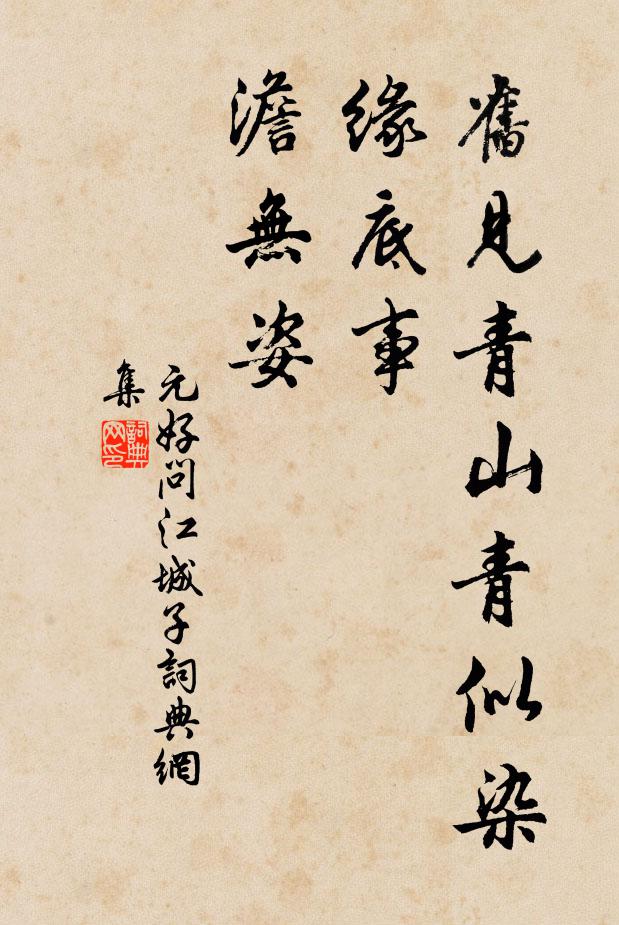 舊見青山青似染
緣底事
澹無姿
元好問江城子詞典網
集
詞典
网印